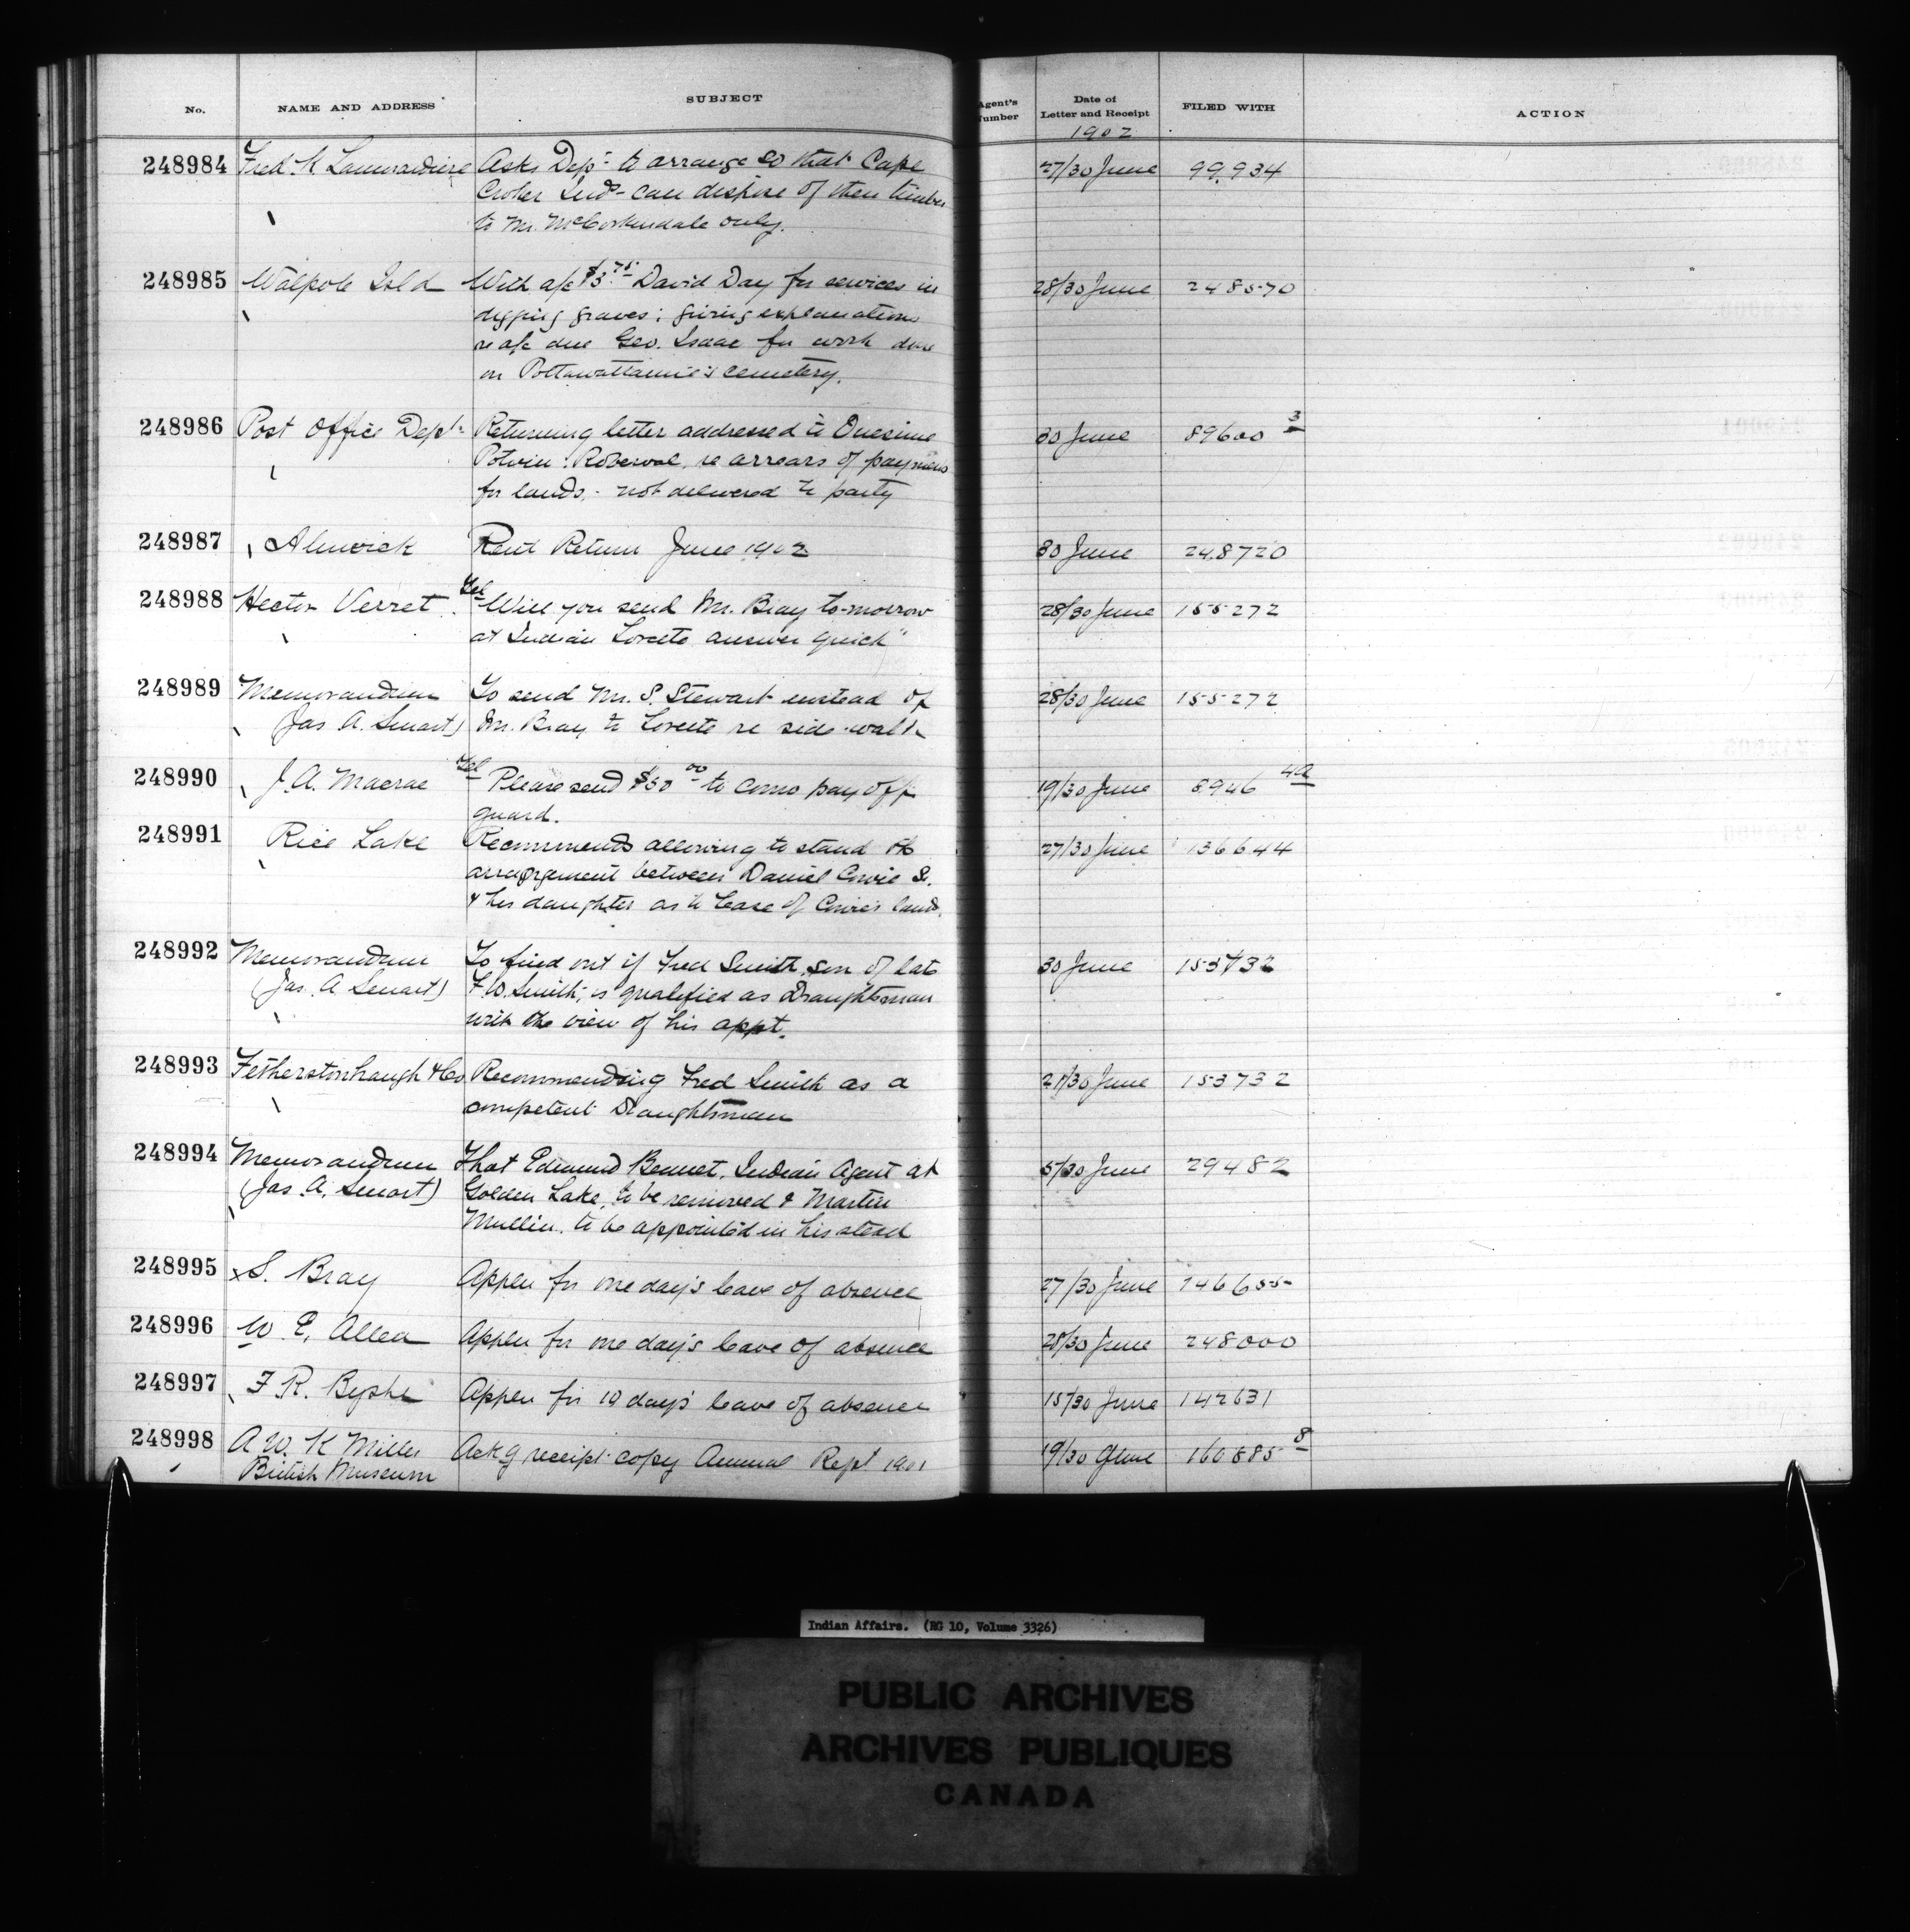 No. NAME AND ADDRESS SUBJECT Agent's Number Date of Letter and Receipt FILED WITH ACTION
1902
248984 Fred. K. Lamorandiere Asks Dept to arrange so that Cape 27/30 June 99,934
Croker Inds - can dispose of their timber
to Mr. McCorkindale only.
248985 Walpole Isld With a/c $3.75 David Day for services in 28/30 June 248570
digging graves; giving explanations
re a/c due Geo. Isaac for work done
on Pottawattamie's cemetery.
248986 Post Office Dept Returning letter addressed to Onesime 30 June 89600 3
Potvin: Roberval, re arrears of payments
for lands, - not delivered to party
248987 Alnwick Rent Return June 1902 30 June 248720
248988 Hector Verret Tel "Will you send Mr. Bray to-morrow 28/30 June 155272
at Indian Lorette answer quick"
248989 Memorandum To send Mr. S. Stewart instead of 28/30 June 155272
(Jas A. Smart) Mr. Bray to Lorette re side-walk
248990 J. A. Macrae Tel Please send $50 00 to Como pay off 19/30 June 8946 4a
guard.
248991 Rice Lake Recommends allowing to stand the 27/30 June 136644
arrangement between Daniel Cowie Sr.
& his daughter as to lease of Cowie's land.
248992 Memorandum To find out if Fred Smith, son of late 30 June 153732
(Jas. A Smart) F. W. Smith, is qualified as Draughtsman
with the view of his appt.
248993 Fetherstonhaugh & Co Recommending Fred Smith as a 21/30 June 153732
competent Draughtsman
248994 Memorandum That Edmund Bennet, Indian Agent at 5/30 June 29482
(Jas. A. Smart) Golden Lake, to be removed & Martin
Mullin, to be appointed in his stead
248995 x S. Bray Appln for one day's leave of absence 27/30 June 146655
248996 W. E. Allen Appln for one day's leave of absence 28/30 June 248000
248997 F. R. Byshe Appln for 10 days' leave of absence 15/30 June 142631
248998 A. W. K Miller Ackg receipt copy Annual Rept 1901 19/30 June 160885 8
British Museum
Indian Affairs. (RG 10, Volume 3326)
PUBLIC ARCHIVES
ARCHIVES PUBLIQUES
CANADA